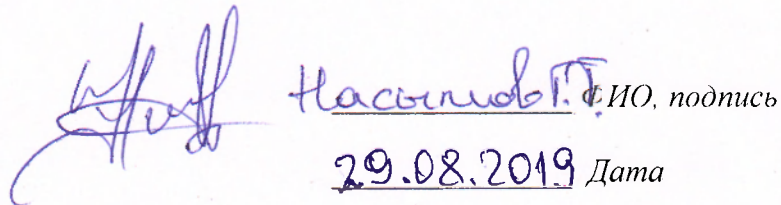 Насыпов Г.Г. ФИО, подпись
29.08.2019 Дата